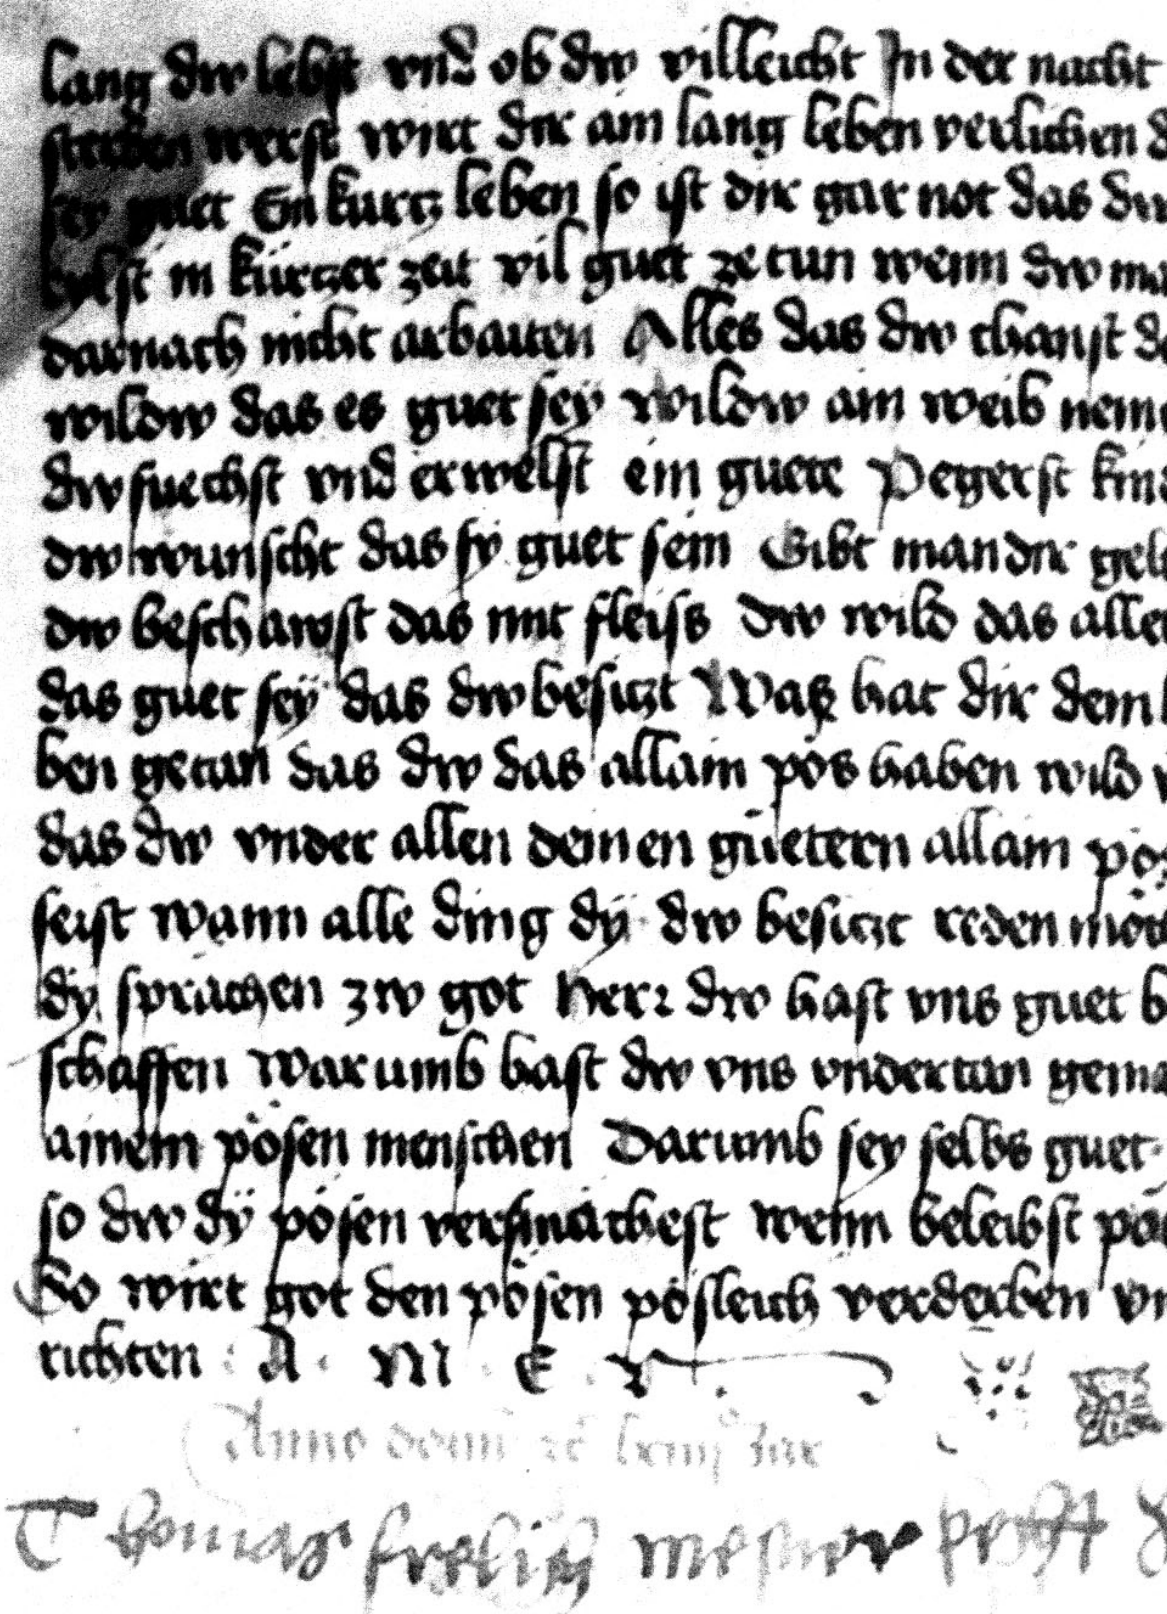 lang dw lebst vnd ob dw villeicht In der nacht
sterben werst wirt dir ain lang leben verlichen
sey guet Ein kurcz leben so ist dir gar not das dw
eylst in kürczer zeit vil guet ze tun wenn dw
darnach nicht arbaiten Alles das dw chanst
wildw das es guet sey wildw ain weib
dw suechst vnd erwelst ein guete Pegerst
dw wunscht das sy guet sein Gibt man dir
dw beschawst das mit fleiss dw wild das
das guet sey das dw besiczt Waz hat dir dein
ben getan das dw das allain pös haben wild
das dw vnder allen deinen güetern allain
seist wann alle ding dÿ dw besiczt reden
dÿ sprächen zw got Herr dw hast vns guet
schaffen Warumb hast dw vns vndertan
ainem pösen menschen Darumb sey selbs guet
so dw dÿ pösen versmächest wenn beleibst
So wirt got den pösen pösleich verderben
richten A M E N
Anno domi jar
Thomas